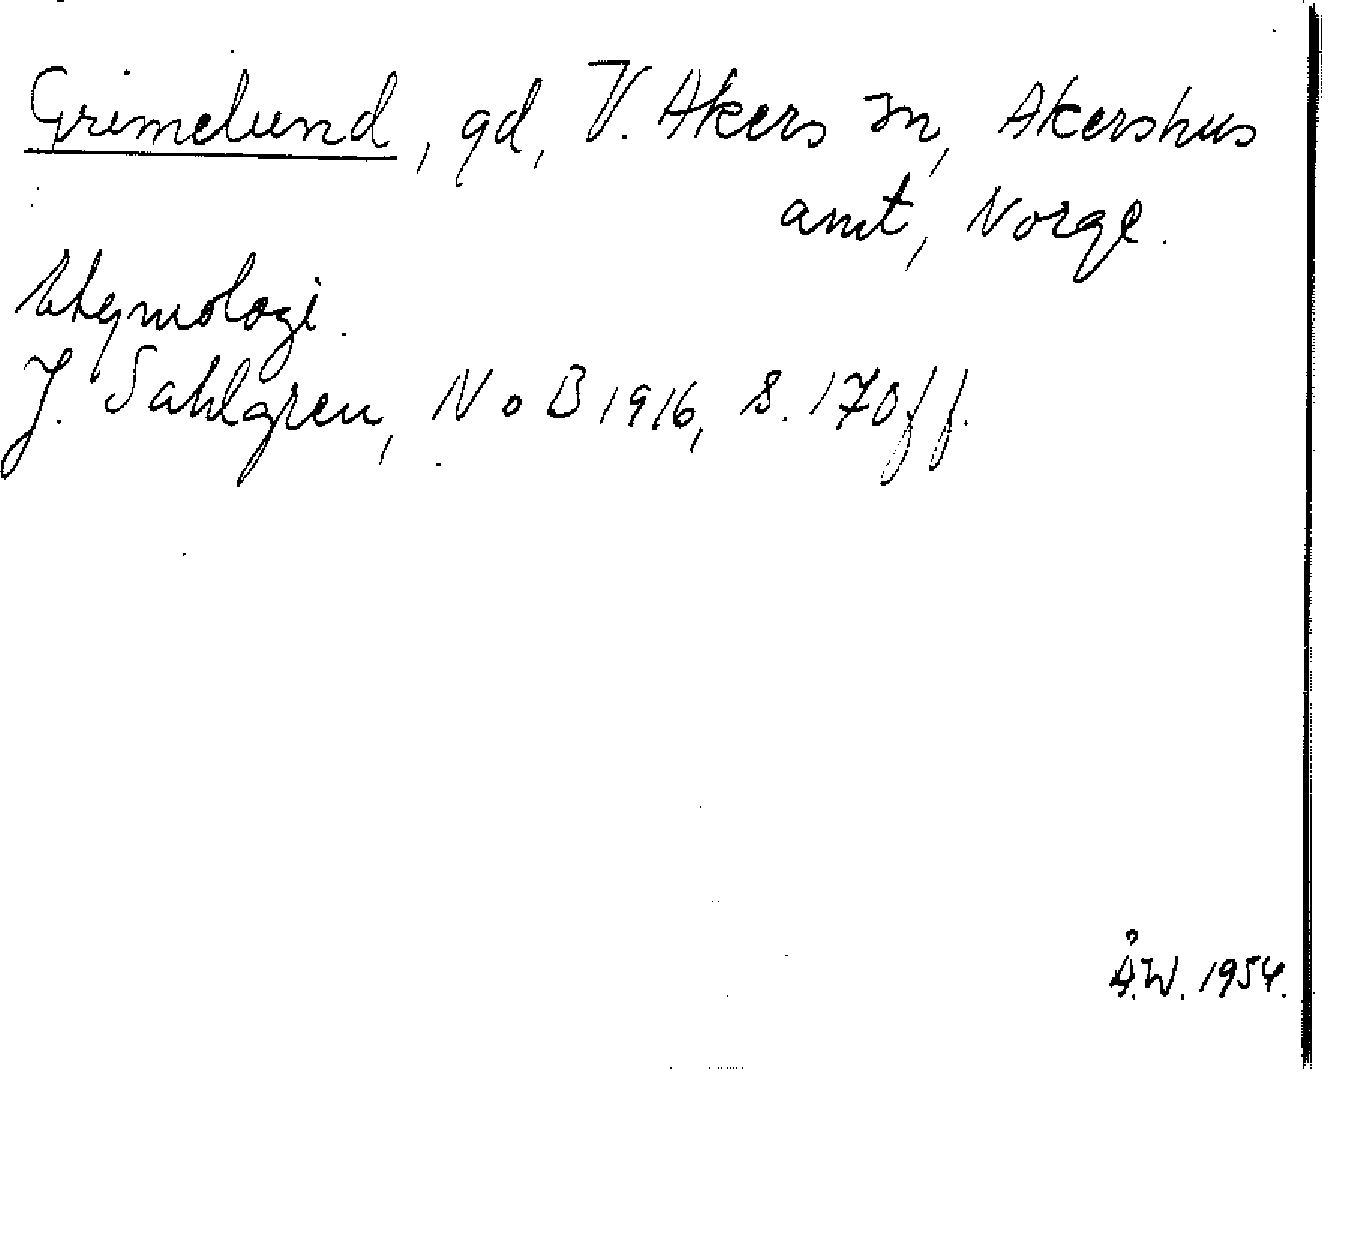 Grimelund, gd, V. Akers sn, Akershus
amt, Norge.
Etymologi.
J. Sahlgren, NoB 1916, s. 170 ff.
Å.W. 1954.